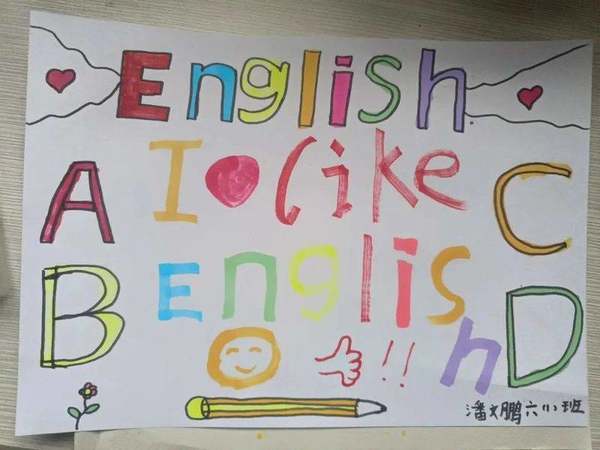 English
I like
English
A
B
C
D
!!
潘文鹏六小班